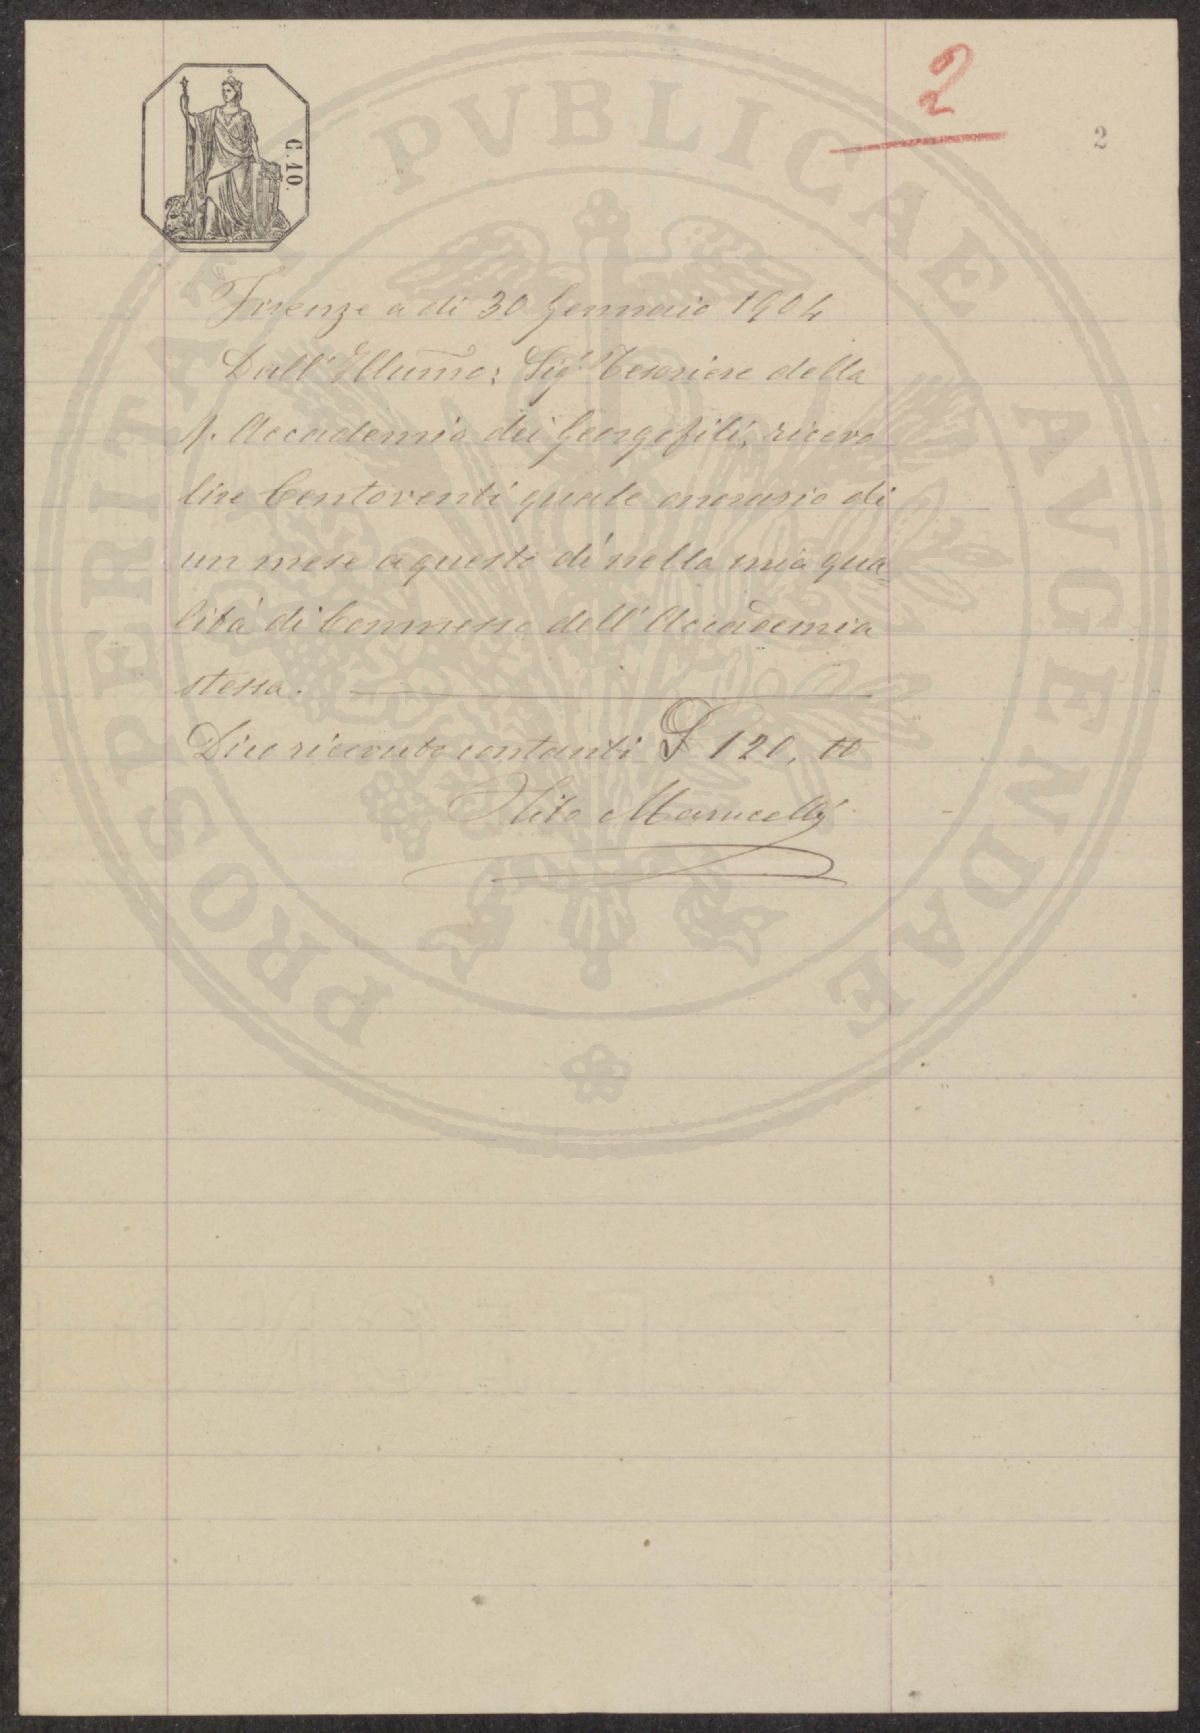 2
2
C. 10.
PROSPERITATI PVBLICAE AVGENDAE
Firenze a di 30 Gennaio 1904
Dall' Illumo: Sig Tesoriere della
Accademia dei Georgofili, ricevo
lire Centoventi quale onorario di
un mese a questo dì nella mia qua=
lità di Commesso dell' Accademia
stessa.
Dico ricevuto contanti £ 120, 00
Marucelli